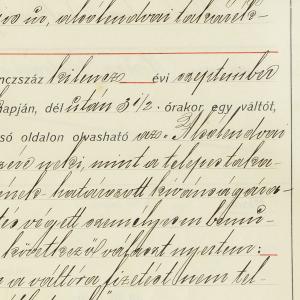 ur, alsólendvai takarék-
nczszáz kilencz évi szeptember
napján, dél után 3 1/2 órakor egy váltót,
só oldalon olvasható az „Alsólendvai
neki, mint a telepes taka-
nek határozott kívánságára
végett személyesen bemu-
következő választ nyertem:
a a váltóra fizetést nem tel-